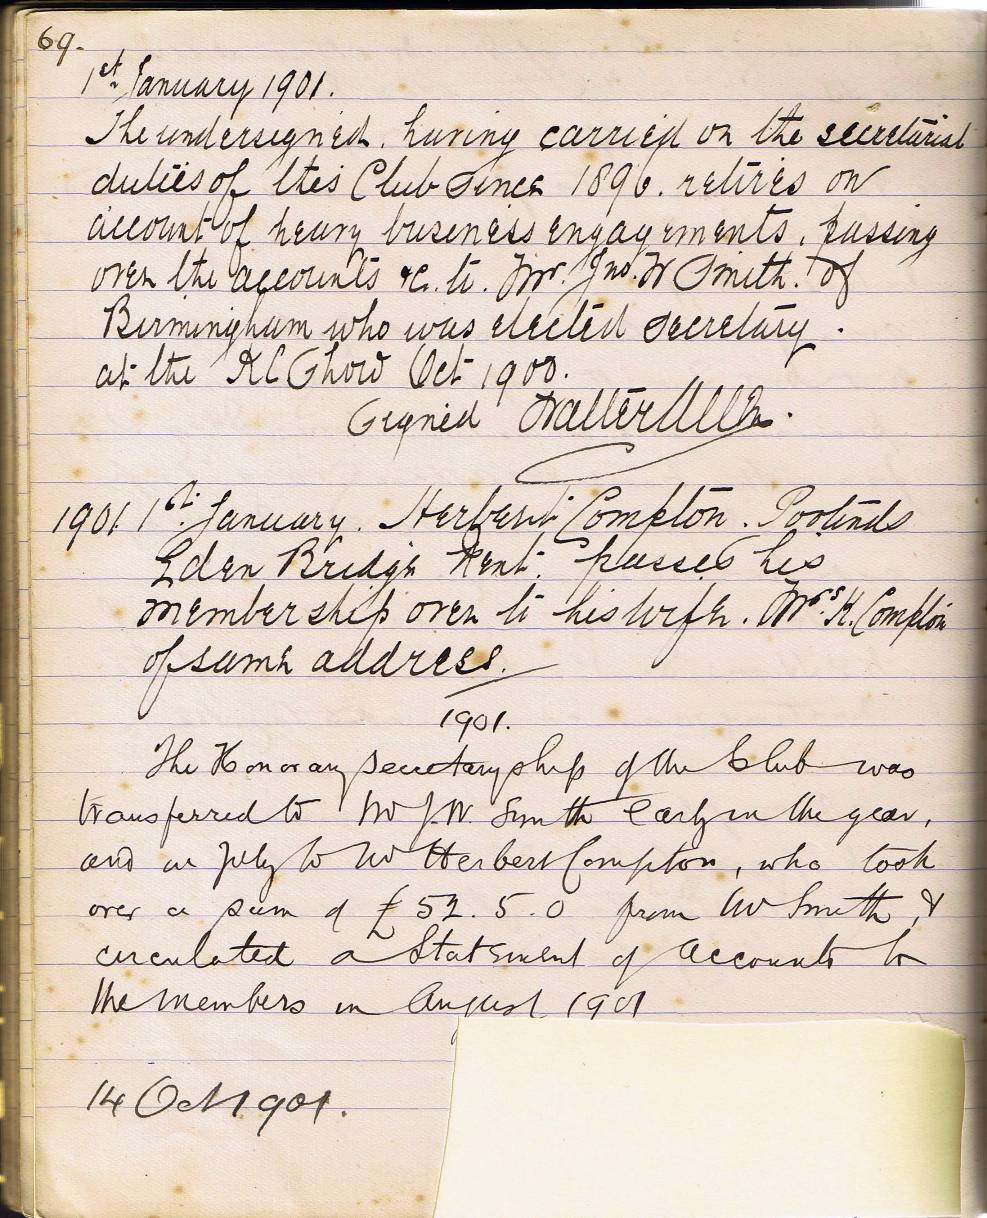 69.
1st January 1901.
The undersigned, having carried on the secretarial
duties of this Club since 1896. retires on
account of heavy business engagements, passing
over the accounts &c. to. Mr. Jno. W Smith. of
Birmingham who was elected secretary.
at the KC Show Oct 1900.
Signed Walter
1901 1st January. Herbert Compton.
Eden Bridge Kent. passes his
membership over to his wife. Mrs. H. Compton
of same address.
1901.
The Honorary Secretaryship of the Club was
transferred to Mr J.W. Smith early in the year,
and in July to Mr Herbert Compton, who took
over a sum of £52.5.0 from Mr Smith, &
circulated a Statement of Accounts to
the members in August 1901
14 Oct 1901.